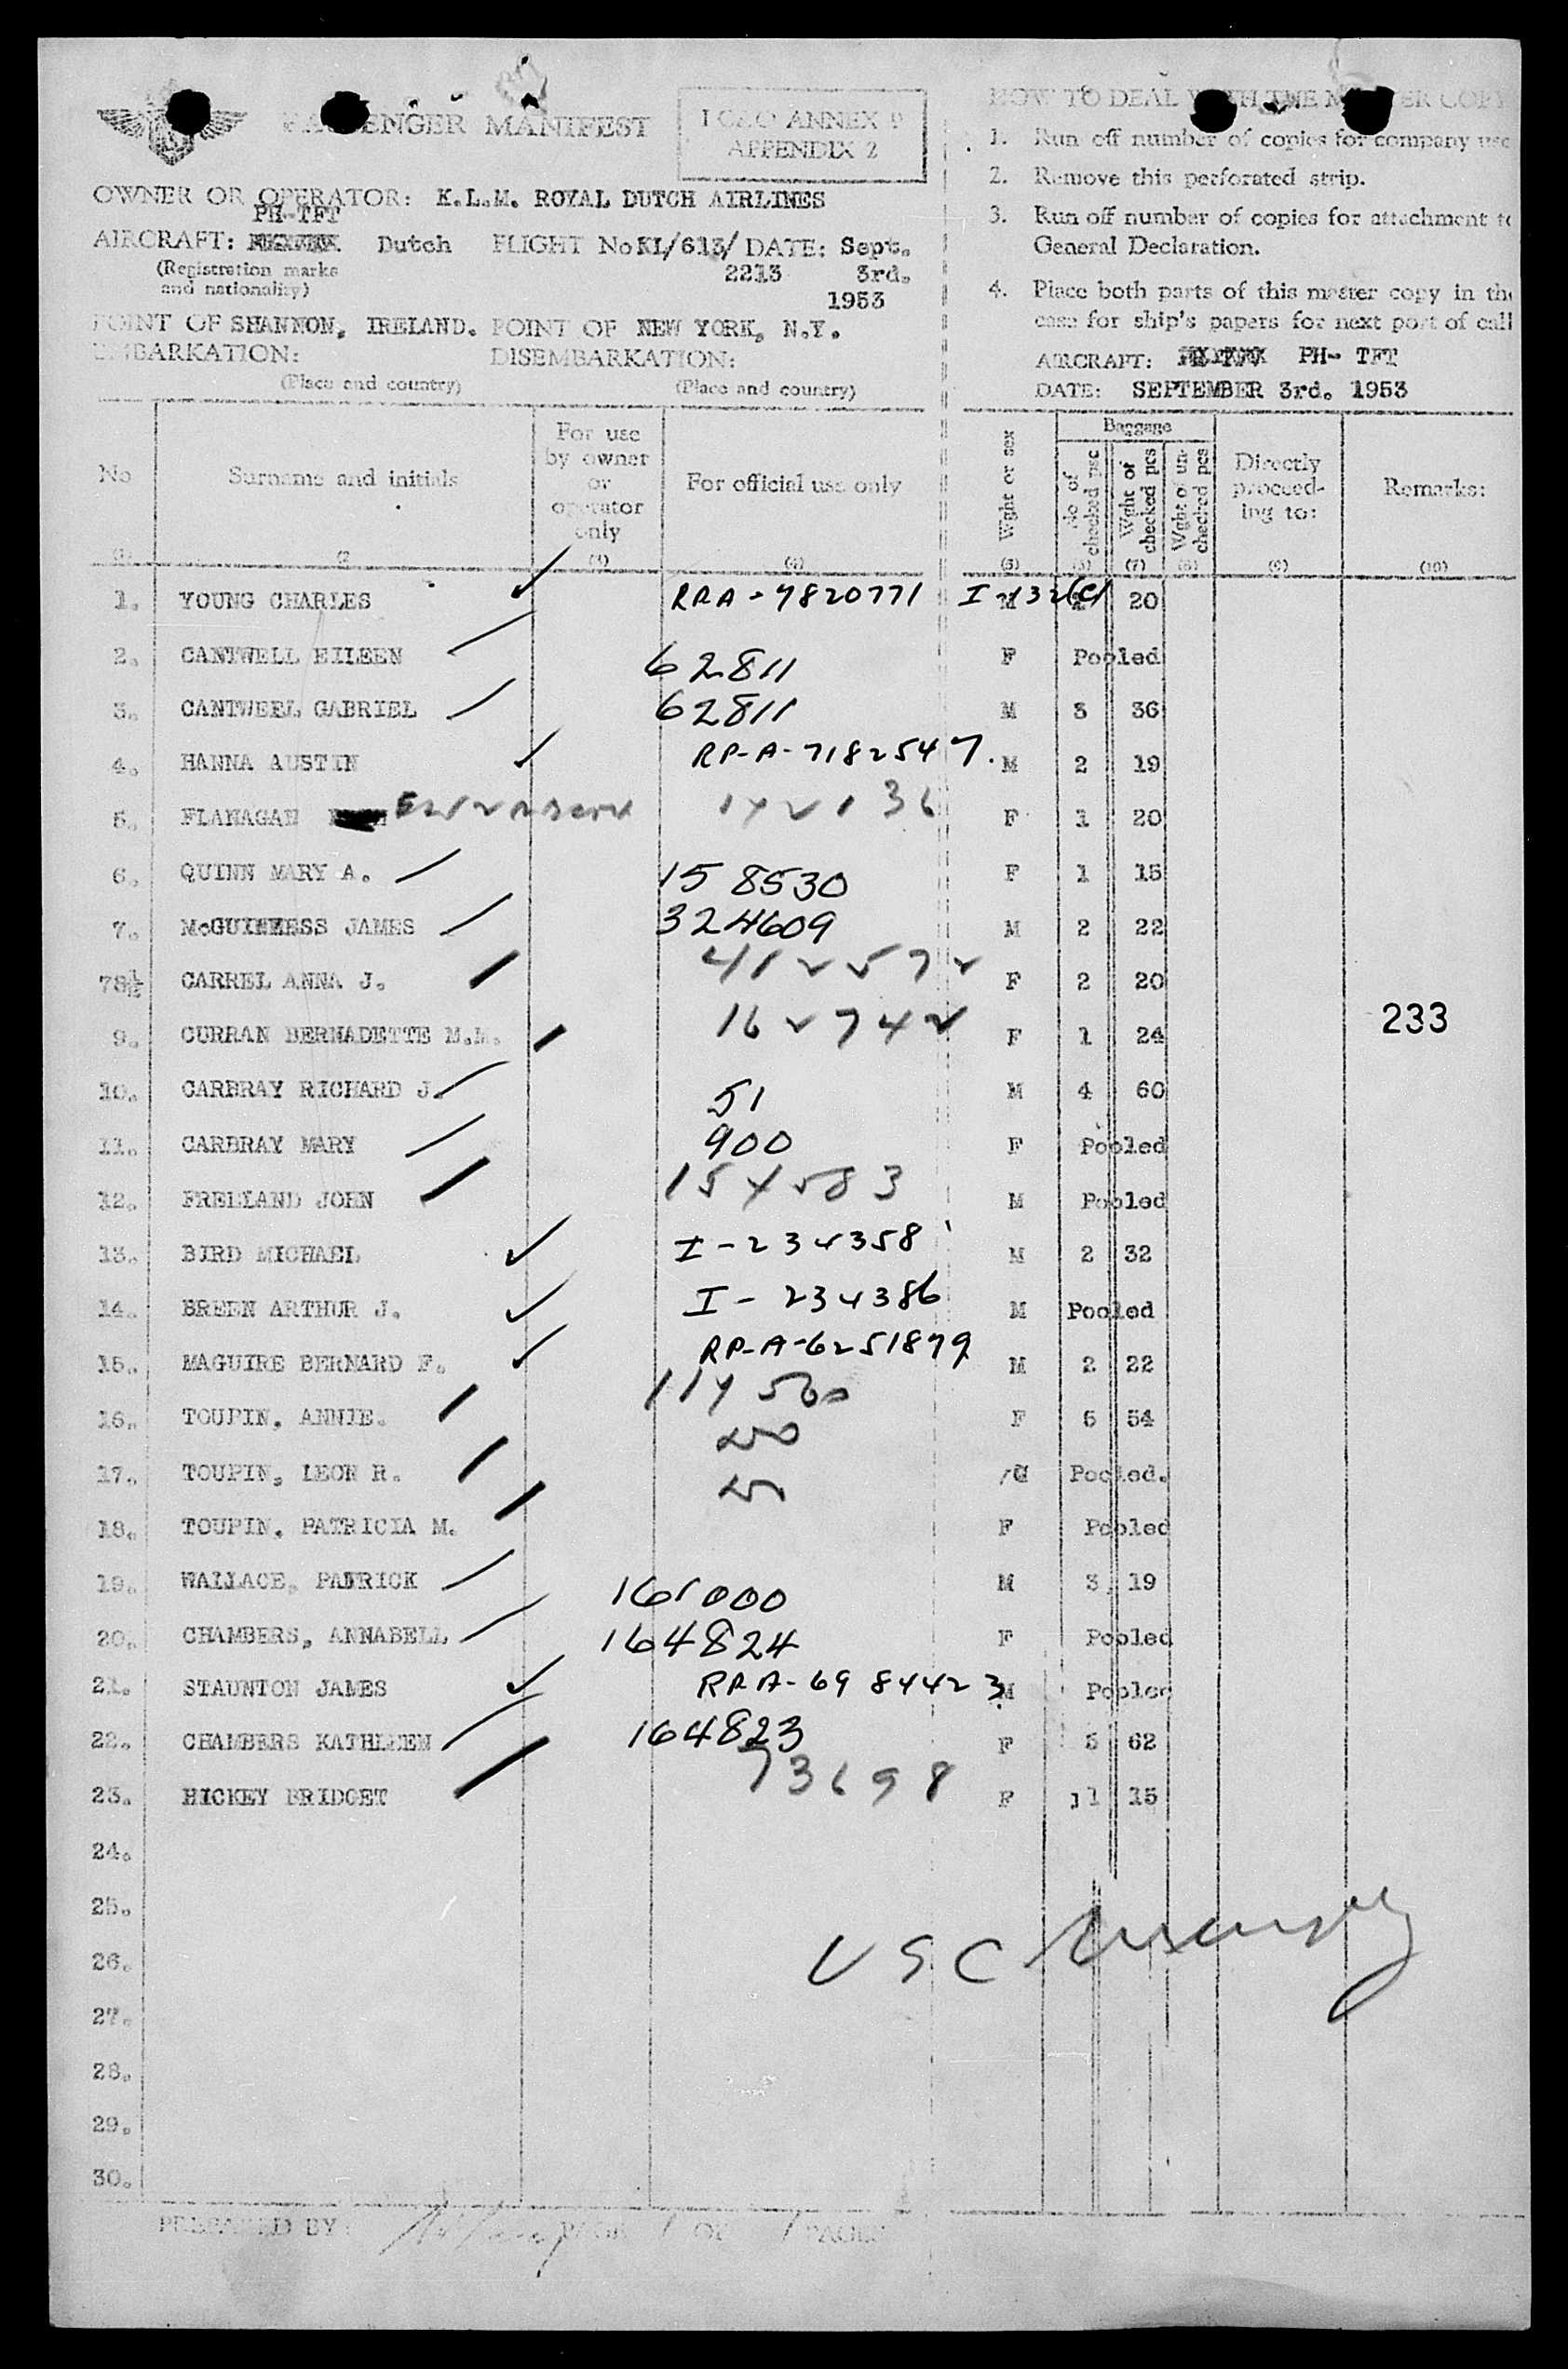 PASSENGER MANIFEST
I C A O ANNEX 9
APPENDIX 2
OWNER OR OPERATOR: K.L.M. ROYAL DUTCH AIRLINES
PH-TFT
AIRCRAFT: Dutch FLIGHT No KL/613/ DATE: Sept.
(Registration marks and nationality) 2213 3rd.
1953
POINT OF SHANNON, IRELAND. POINT OF NEW YORK, N.Y.
EMBARKATION: DISEMBARKATION:
(Place and country) (Place and country)
HOW TO DEAL WITH THE MASTER COPY
1. Run off number of copies for company use
2. Remove this perforated strip.
3. Run off number of copies for attachment to
General Declaration.
4. Place both parts of this master copy in the
case for ship's papers for next port of call
AIRCRAFT: PH- TFT
DATE: SEPTEMBER 3rd. 1953
No Surname and initials For use by owner or operator only For official use only Wght or sex Baggage No of checked psc Wght of checked pcs Wght of un-checked pcs Directly proceed-ing to: Remarks:
(1) (2 (3) (4) (5) (6) (7) (8) (9) (10)
1. YOUNG CHARLES 7820771 M 20
2. CANTWELL EILEEN 62811 F Pooled
3. CANTWEEL GABRIEL 62811 M 3 36
4. HANNA AUSTIN RP-A-7182547. M 2 19
5. FLANAGAN F 1 20
6. QUINN MARY A. 158530 F 1 15
7. McGUINNESS JAMES 324609 M 2 22
78½ CARREL ANNA J. F 2 20
9. CURRAN BERNADETTE M.M. 162742 F 1 24
233
10. CARBRAY RICHARD J. 51 M 4 60
11. CARBRAY MARY 900 F Pooled
12. FRELLAND JOHN M Pooled
13. BIRD MICHAEL I-234358 M 2 32
14. BREEN ARTHUR J. I-234386 M Pooled
15. MAGUIRE BERNARD F. RP-A-6251879 M 2 22
16. TOUPIN, ANNIE. F 54
17. TOUPIN, LEON R. Pooled.
18. TOUPIN, PATRICIA M. F Pooled
19. WALLACE, PATRICK 161000 M 3 19
20. CHAMBERS, ANNABELL 164824 F Pooled
21. STAUNTON JAMES 6984423 M Pooled
22. CHAMBERS KATHLEEN 164823 F 5 62
23. HICKEY BRIDGET 73698 F 1 15
24.
25.
26. USC
27.
28.
29.
30.
PREPARED BY: PAGE 1 OF 1 PAGES